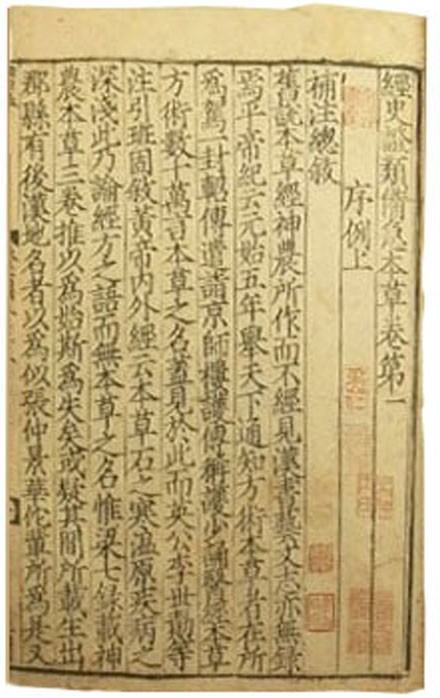 經史證類備急本草卷第一
序例上
補注總敘
舊說本草經神農所作而不經見漢書藝文志亦無錄
焉平帝紀云元始五年舉天下通知方術本草者在所
爲駕一封軺傳遣詣京師樓護傳稱護少誦醫經本草
方術數十萬言本草之名蓋見於此而英公李世勣等
注引班固敘黃帝內外經云本草石之寒溫原疾病之
深淺此乃論經方之語而無本草之名惟梁七錄載神
農本草三卷推以爲始斯爲失矣或疑其間所載生出
郡縣有後漢地名者以爲似張仲景華佗輩所爲是又